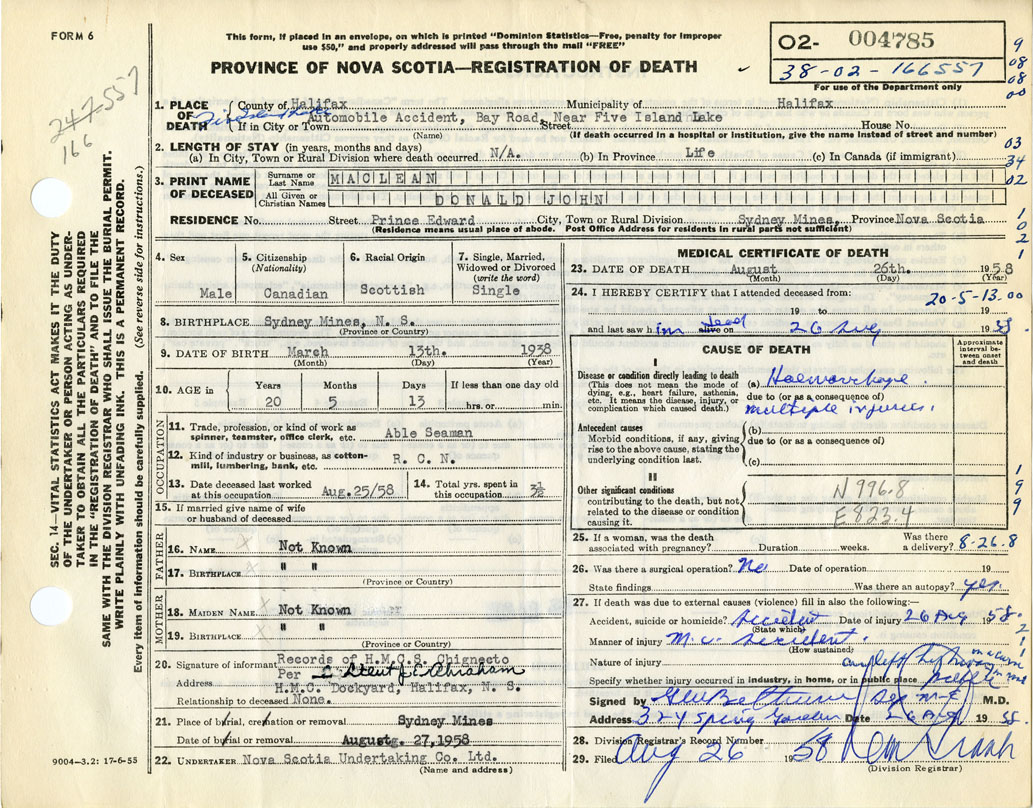 FORM 6
This form, if placed in an envelope, on which is printed "Dominion Statistics—Free, penalty for improper
use $50," and properly addressed will pass through the mail "FREE"
PROVINCE OF NOVA SCOTIA—REGISTRATION OF DEATH
O2- 004785
38-02-166557
For use of the Department only
9
08
08
00
03
34
02
1
0
2
1
1
9
9
2
1
247,557
166
SEC. 14—VITAL STATISTICS ACT MAKES IT THE DUTY
OF THE UNDERTAKER OR PERSON ACTING AS UNDER-
TAKER TO OBTAIN ALL THE PARTICULARS REQUIRED
IN THE "REGISTRATION OF DEATH" AND TO FILE THE
SAME WITH THE DIVISION REGISTRAR WHO SHALL ISSUE THE BURIAL PERMIT.
WRITE PLAINLY WITH UNFADING INK. THIS IS A PERMANENT RECORD.
Every item of information should be carefully supplied. (See reverse side for instructions.)
1. PLACE OF DEATH
County of Halifax Municipality of Halifax
Five Island Lake
Automobile Accident, Bay Road, Near Five Island Lake
If in City or Town Street House No.
(Name) (If death occurred in a hospital or institution, give the name instead of street and number)
2. LENGTH OF STAY (in years, months and days)
(a) In City, Town or Rural Division where death occurred N/A. (b) In Province Life (c) In Canada (if immigrant)
3. PRINT NAME OF DECEASED
Surname or Last Name MACLEAN
All Given or Christian Names DONALD JOHN
RESIDENCE No. Street Prince Edward City, Town or Rural Division Sydney Mines, Province Nova Scotia
(Residence means usual place of abode. Post Office Address for residents in rural parts not sufficient)
4. Sex Male
5. Citizenship (Nationality) Canadian
6. Racial Origin Scottish
7. Single, Married, Widowed or Divorced (write the word) Single
8. BIRTHPLACE Sydney Mines, N. S.
(Province or Country)
9. DATE OF BIRTH March 13th. 1938
(Month) (Day) (Year)
10. AGE in Years Months Days If less than one day old
20 5 13 hrs. or min.
OCCUPATION
11. Trade, profession, or kind of work as
spinner, teamster, office clerk, etc. Able Seaman
12. Kind of industry or business, as cotton-
mill, lumbering, bank, etc. R. C. N.
13. Date deceased last worked
at this occupation Aug.25/58
14. Total yrs. spent in
this occupation 3½
15. If married give name of wife
or husband of deceased
FATHER
16. NAME Not Known
17. BIRTHPLACE " "
(Province or Country)
MOTHER
18. MAIDEN NAME Not Known
19. BIRTHPLACE " "
(Province or Country)
20. Signature of informant Records of H.M.C.S. Chignecto
Per
Address H.M.C. Dockyard, Halifax, N. S.
Relationship to deceased None.
21. Place of burial, cremation or removal Sydney Mines
Date of burial or removal August 27,1958
22. UNDERTAKER Nova Scotia Undertaking Co. Ltd.
(Name and address)
9004—3.2: 17-6-55
MEDICAL CERTIFICATE OF DEATH
23. DATE OF DEATH August 26th. 1958
(Month) (Day) (Year)
24. I HEREBY CERTIFY that I attended deceased from:
20-5-13-00
19 to 19
and last saw him dead alive on 26 Aug 1958
CAUSE OF DEATH
Approximate interval between onset and death
I
Disease or condition directly leading to death
(This does not mean the mode of
dying, e.g., heart failure, asthenia,
etc. It means the disease, injury, or
complication which caused death.)
(a) Haemorrhage.
due to (or as a consequence of)
multiple injuries.
Antecedent causes
Morbid conditions, if any, giving
rise to the above cause, stating the
underlying condition last.
(b)
due to (or as a consequence of)
(c)
II
Other significant conditions
contributing to the death, but not
related to the disease or condition
causing it.
N 996.8
E 823.4
25. If a woman, was the death
associated with pregnancy? Duration weeks. Was there a delivery? 8-26.8
26. Was there a surgical operation? No Date of operation 19
State findings Was there an autopsy? yes.
27. If death was due to external causes (violence) fill in also the following:—
Accident, suicide or homicide? Accident Date of injury 26 Aug 1958.
(State which)
Manner of injury M.V. Accident.
(How sustained)
Nature of injury
Specify whether injury occurred in industry, in home, or in public place
Signed by M.D.
Address 324 Spring Garden Date 26 Aug 1958.
28. Division Registrar's Record Number
29. Filed Aug 26 1958
(Division Registrar)